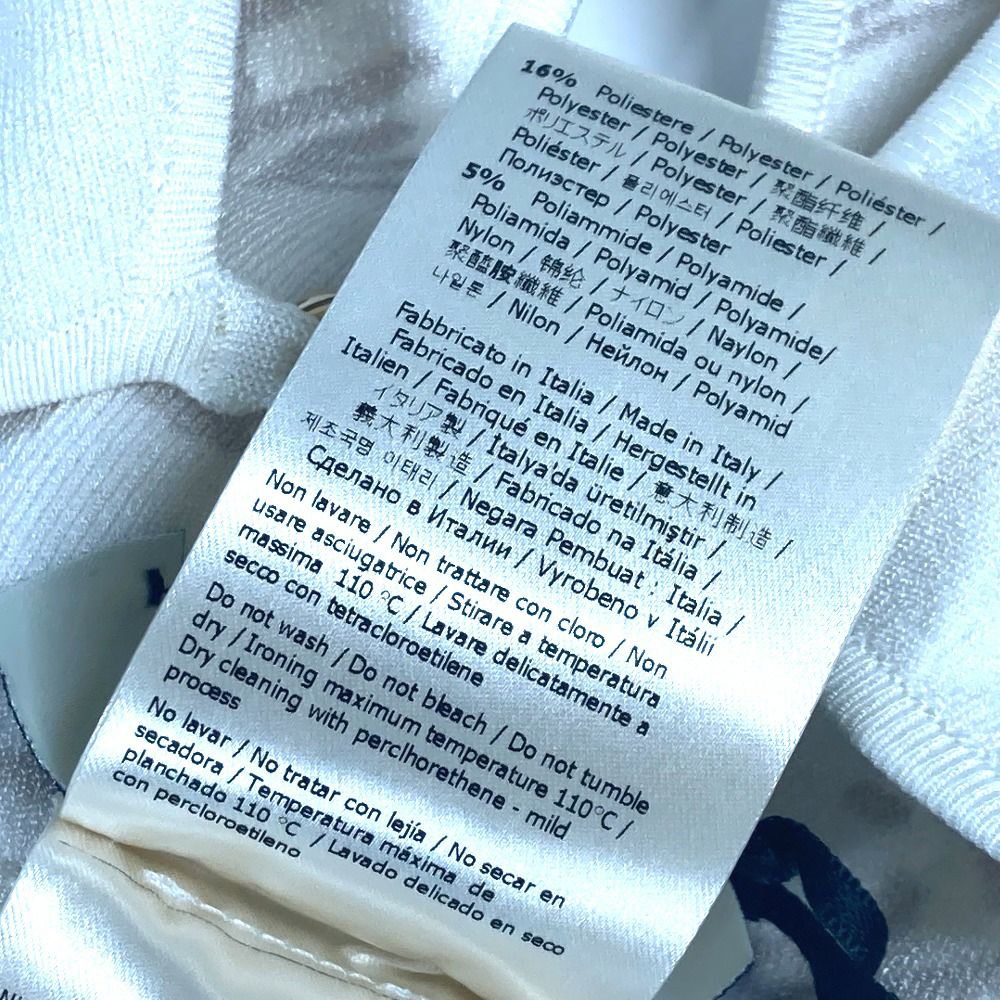 16% Poliestere / Polyester / Poliéster /
Polyester / Polyester / 聚酯纤维 /
ポリエステル / Polyester / 聚酯纖維 /
Poliéster / 폴리에스터 / Poliester /
Полиэстер / Polyester
5% Poliammide / Polyamide /
Poliamida / Polyamid / Polyamide/
Nylon / 锦纶 / ナイロン / Naylon /
聚醯胺纖維 / Poliamida ou nylon /
나일론 / Nilon / Нейлон / Polyamid
Fabbricato in Italia / Made in Italy /
Fabricado en Italia / Hergestellt in
Italien / Fabriqué en Italie / 意大利制造 /
イタリア製 / İtalya'da üretilmiştir /
義大利製造 / Fabricado na Itália /
제조국명 이태리 / Negara Pembuat : Italia /
Сделано в Италии / Vyrobeno v Itálii
Non lavare / Non trattare con cloro / Non
usare asciugatrice / Stirare a temperatura
massima 110 °C / Lavare delicatamente a
secco con tetracloroetilene
Do not wash / Do not bleach / Do not tumble
dry / Ironing maximum temperature 110°C /
Dry cleaning with perclhorethene - mild
process
No lavar / No tratar con lejía / No secar en
secadora / Temperatura máxima de
planchado 110 °C / Lavado delicado en seco
con percloroetileno